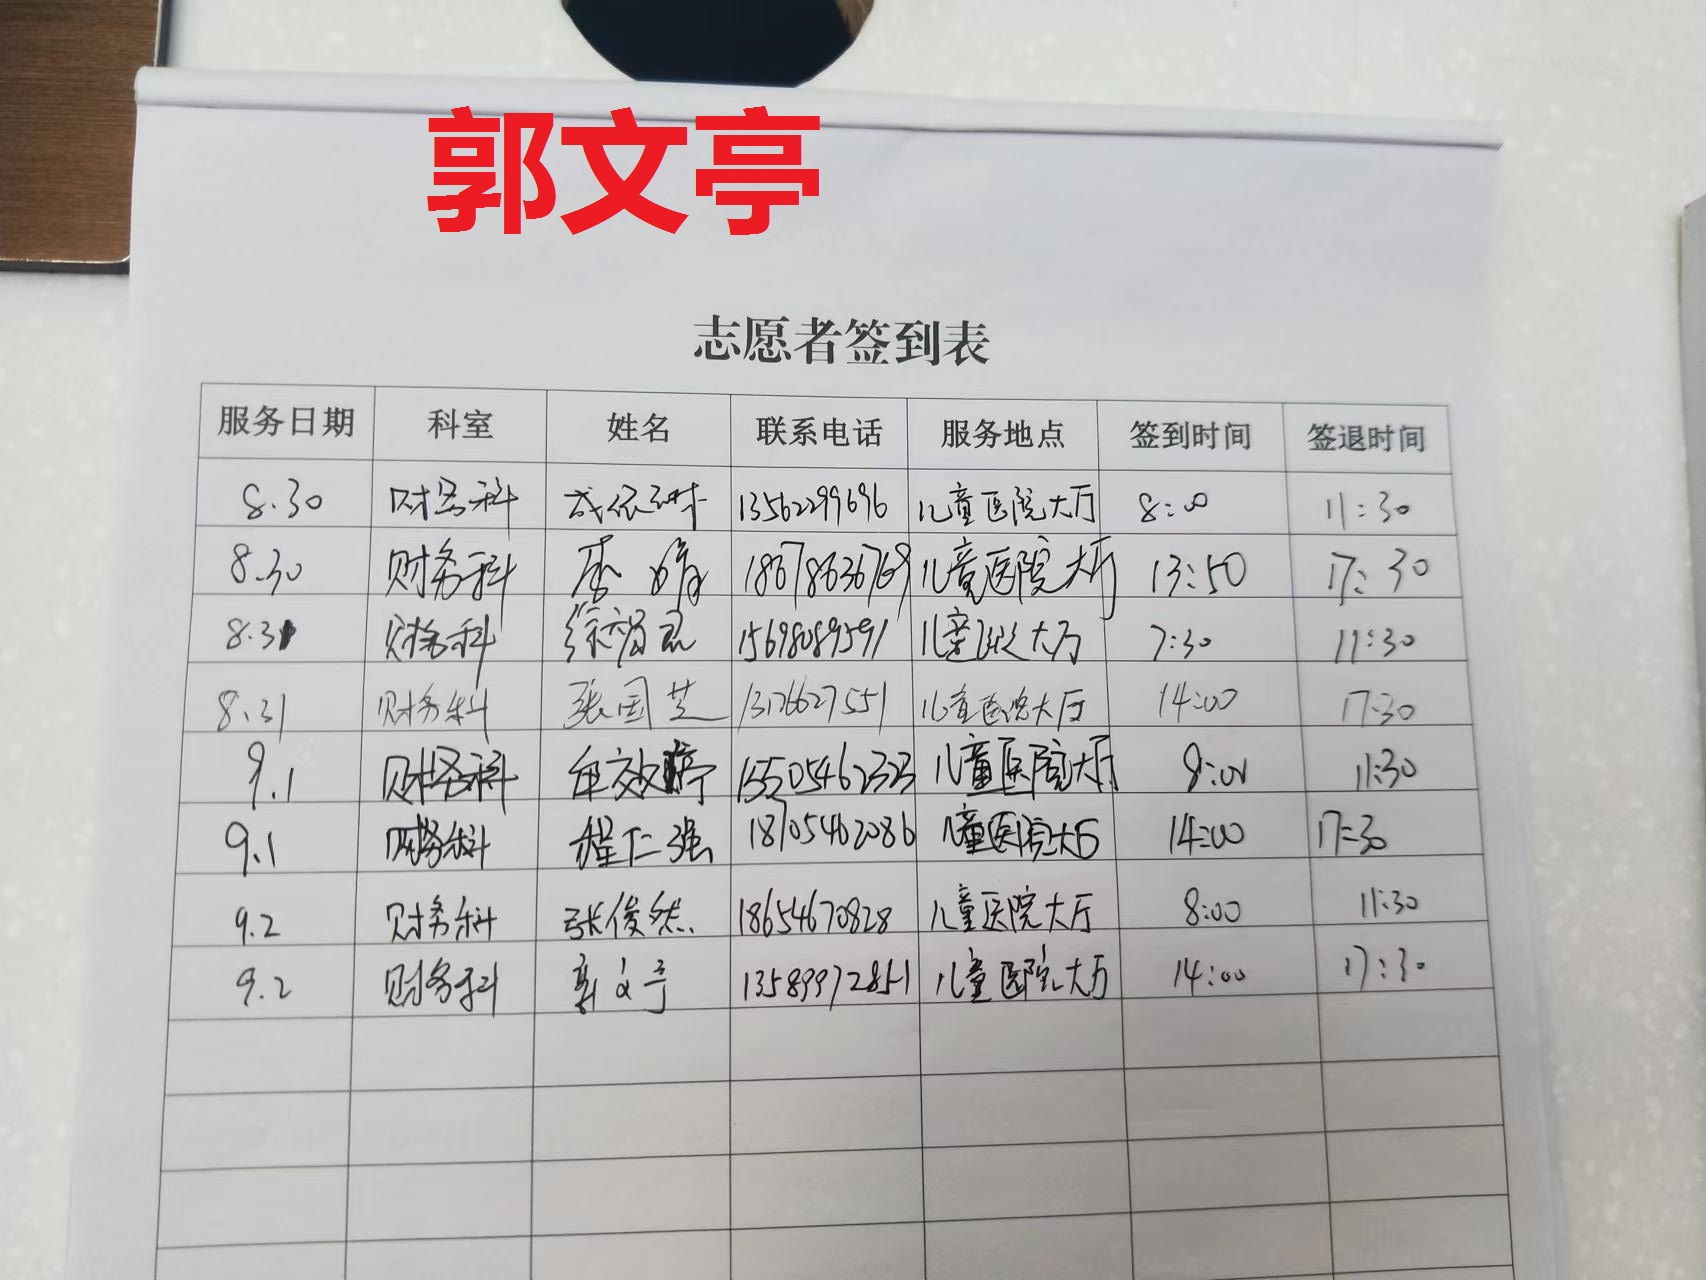 郭文亭
志愿者签到表
服务日期 科室 姓名 联系电话 服务地点 签到时间 签退时间
8.30 财务科 13562299696 儿童医院大厅 8:00 11:30
8.30 财务科 李婧 18678636769 儿童医院大厅 13:50 17:30
8.31 财务科 15698089591 儿童医院大厅 7:30 11:30
8.31 财务科 张国芝 13176627551 儿童医院大厅 14:00 17:30
9.1 财务科 牟效婷 15505462323 儿童医院大厅 8:00 11:30
9.1 财务科 程仁强 18705462086 儿童医院大厅 14:00 17:30
9.2 财务科 张俊然 18654670828 儿童医院大厅 8:00 11:30
9.2 财务科 郭文亭 13589972851 儿童医院大厅 14:00 17:30